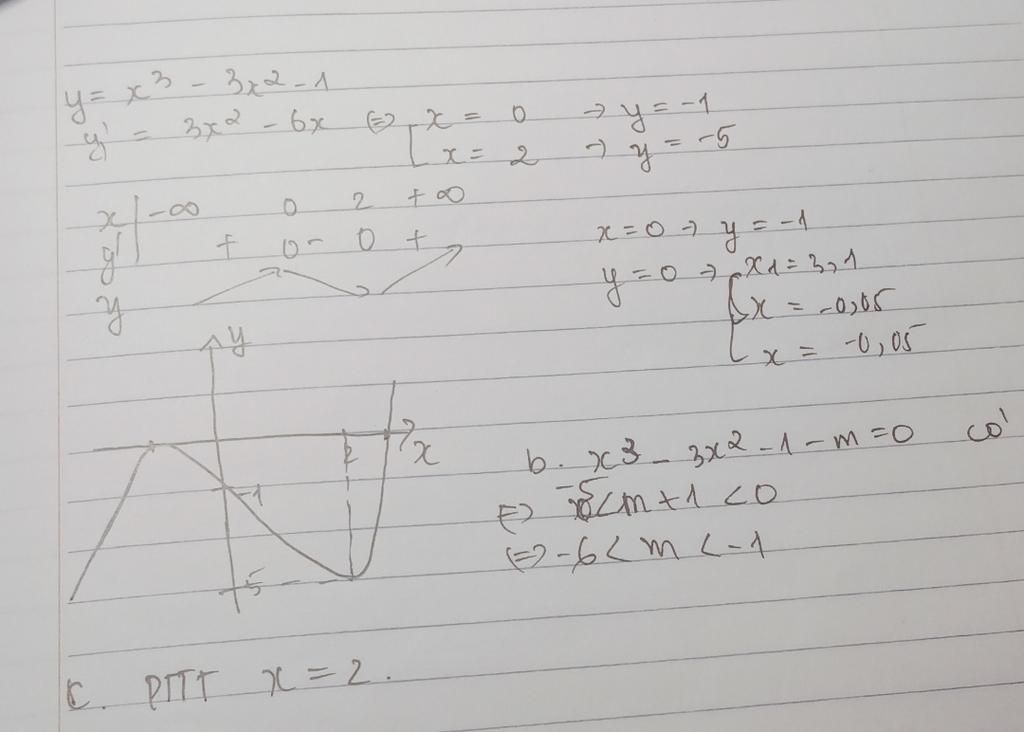 y = x³ - 3x² - 1
y' = 3x² - 6x ⇔ [ x = 0 → y = -1
x = 2 → y = -5
x | -∞ 0 2 +∞
y' | + 0 - 0 +
y
x = 0 → y = -1
y = 0 → [ x1 = 3,1
x = -0,05
x = -0,05
y
x
2
-1
-5
b. x³ - 3x² - 1 - m = 0 có
⇔ -5 < m + 1 < 0
⇔ -6 < m < -1
c. PTTT x = 2.